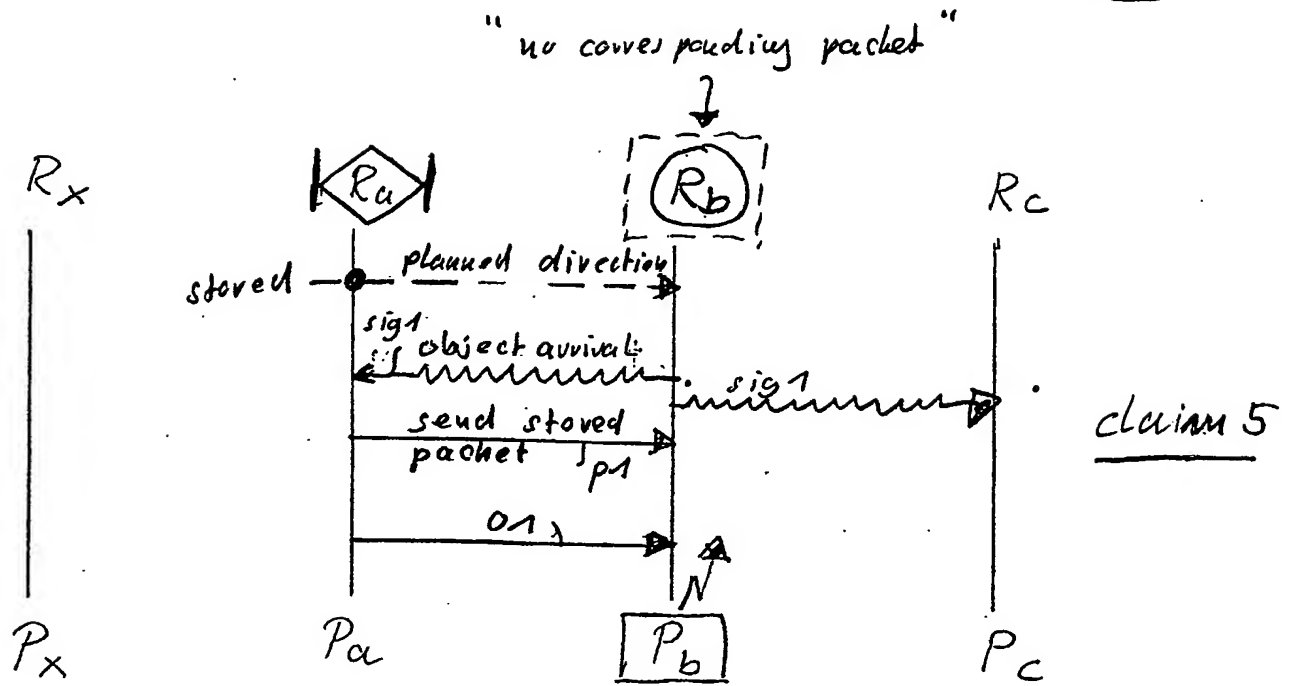 "no corresponding packet"
Rx Ra Rb Rc
stored planned direction
sig1
object arrival
sig1
send stored
packet p1
claim 5
01
Px Pa Pb Pc